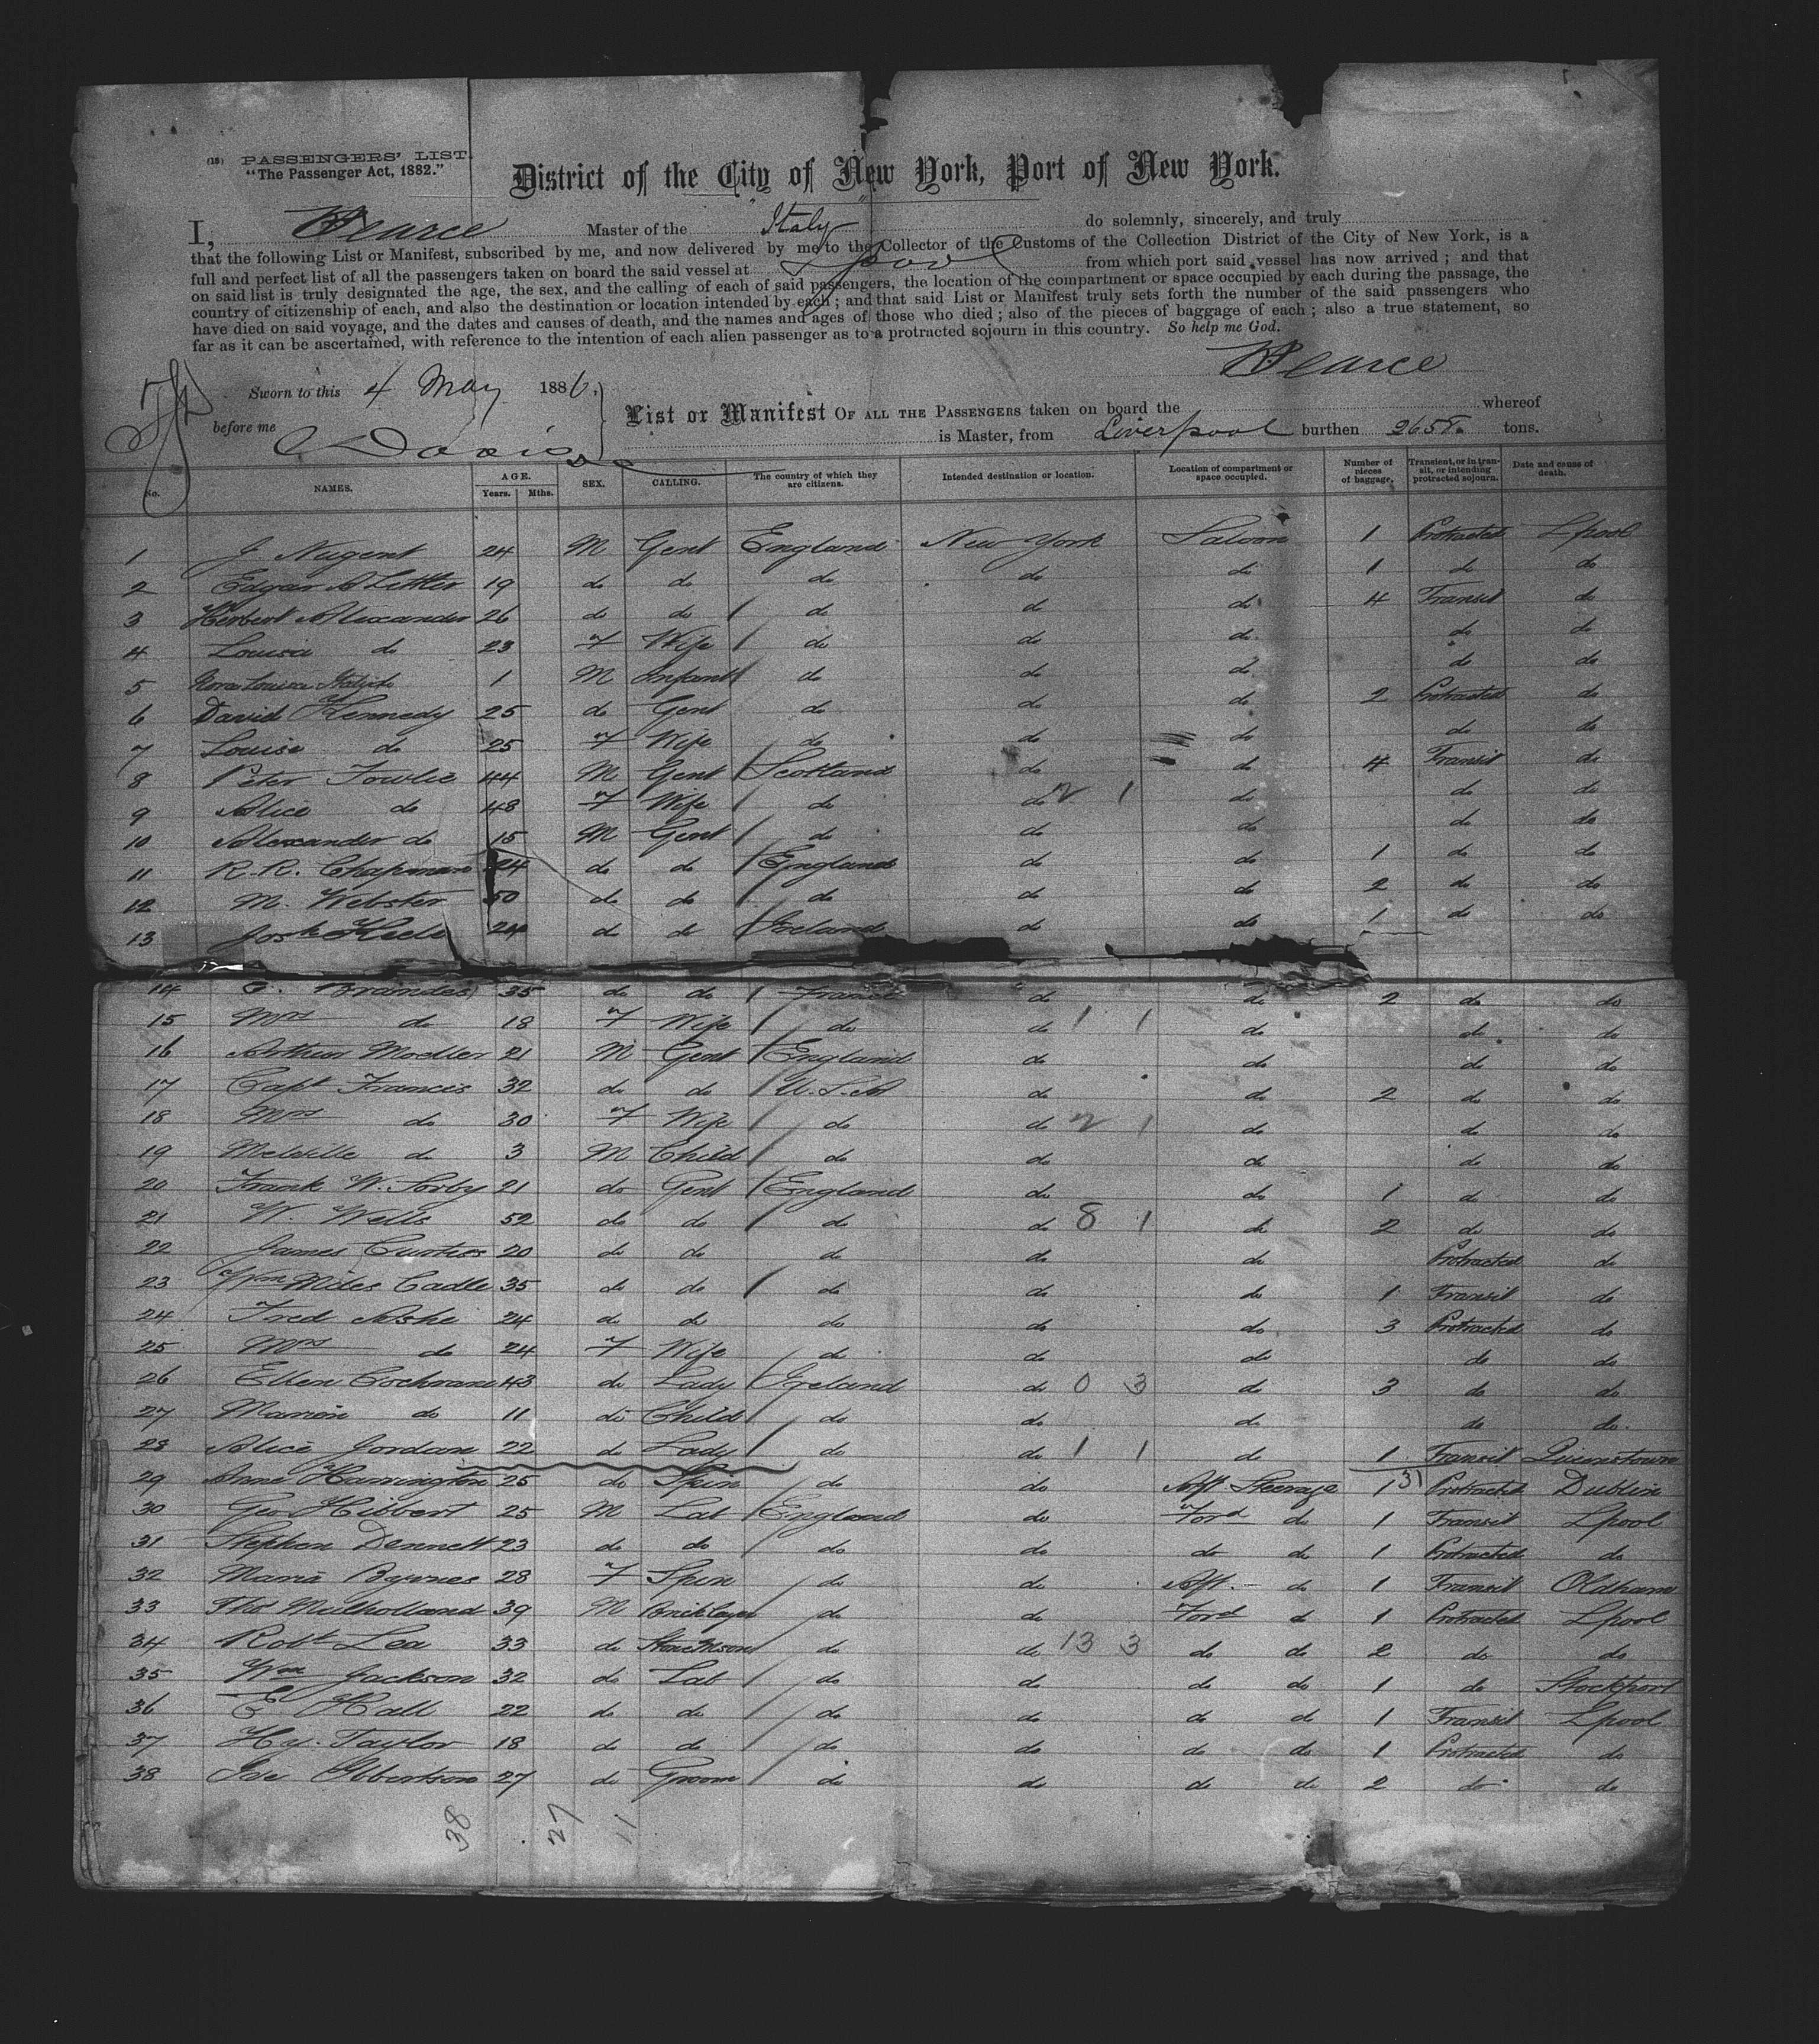 (15) PASSENGERS' LIST.
"The Passenger Act, 1882."
District of the City of New York, Port of New York.
I, Pearce Master of the "Italy" do solemnly, sincerely, and truly
that the following List or Manifest, subscribed by me, and now delivered by me to the Collector of the Customs of the Collection District of the City of New York, is a
full and perfect list of all the passengers taken on board the said vessel at Lpool from which port said vessel has now arrived; and that
on said list is truly designated the age, the sex, and the calling of each of said passengers, the location of the compartment or space occupied by each during the passage, the
country of citizenship of each, and also the destination or location intended by each; and that said List or Manifest truly sets forth the number of the said passengers who
have died on said voyage, and the dates and causes of death, and the names and ages of those who died; also of the pieces of baggage of each; also a true statement, so
far as it can be ascertained, with reference to the intention of each alien passenger as to a protracted sojourn in this country. So help me God.
Pearce
Sworn to this 4 May 1886.
before me Davis
List or Manifest OF ALL THE PASSENGERS taken on board the whereof
is Master, from Liverpool burthen 2658 tons.
No. NAMES. AGE. Years. Mths. SEX. CALLING. The country of which they are citizens. Intended destination or location. Location of compartment or space occupied. Number of pieces of baggage. Transient, or in transit, or intending protracted sojourn. Date and cause of death.
1 J Nugent 24 M Gent England New York Saloon 1 Protracted Lpool
2 Edgar A Littler 19 do do do do do 1 do do
3 Herbert Alexander 26 do do do do do 4 Transit do
4 Louisa do 23 F Wife do do do do do
5 Nora Louisa 1 M Infant do do do do
6 David Kennedy 25 do Gent do do do 2 Protracted do
7 Louisa do 25 F Wife do do do do do
8 Peter Fowlie 44 M Gent Scotland do do 4 Transit do
9 Alice do 48 F Wife do do 2 1 do do do
10 Alexander do 15 M Gent do do do do do
11 R. R. Chapman 24 do do England do do 1 do do
12 M. Webster 50 do do do do do 2 do do
13 24 do do Ireland do do 1 do do
14 Brandes 35 do do France do do 2 do do
15 Mrs do 18 F Wife do do 1 1 do do do
16 Arthur Moeller 21 M Gent England do do do do
17 Capt Francis 32 do do U.S.A do do 2 do do
18 Mrs do 30 F Wife do do 2 1 do do do
19 Melville do 3 M Child do do do do do
20 Frank W. Sorby 21 do Gent England do do 1 do do
21 W. Wells 52 do do do do 8 1 do 2 do do
22 James Curtiss 20 do do do do do Protracted do
23 Wm Miles Cadle 35 do do do do do 1 Transit do
24 Fred Ashe 24 do do do do do 3 Protracted do
25 Mrs do 24 F Wife do do do do do
26 Ellen Cochrane 43 do Lady Ireland do 0 3 do 3 do do
27 Marion do 11 do Child do do do do do.
28 Alice Jordan 22 do Lady do do 1 1 do 1 Transit Queenstown
29 Anne Harrington 25 do Spin do do Aft Steerage 1 31 Protracted Dublin
30 Geo Hibbert 25 M Lab England do Ford do 1 Transit Lpool
31 Stephen Dennett 23 do do do do do do 1 Protracted do
32 Maria Byrnes 28 F Spin do do Aft. do 1 Transit Oldham
33 Thos Mulholland 39 M Bricklayer do do Ford do 1 Protracted Lpool
34 Robt Lea 33 do do do 13 3 do do 2 do do
35 Wm Jackson 32 do Lab do do do do 1 do Stockport
36 E Hall 22 do do do do do do 1 Transit Lpool
37 Hy. Taylor 18 do do do do do do 1 Protracted do
38 Ibbertson 27 do Groom do do do do 2 do do
38 27 11